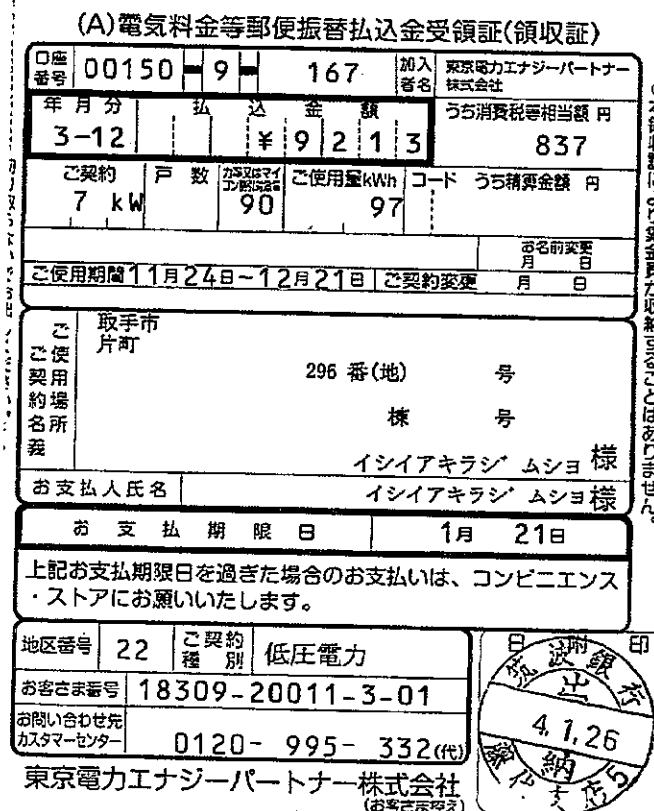 (A)電気料金等郵便振替払込金受領証(領収証)
口座番号 00150-9-167 加入者名 東京電力エナジーパートナー株式会社
年月分 払込金額 うち消費税等相当額 円
3-12 ¥9213 837
ご契約 戸数 力率又はマイコン割引容量 ご使用量kWh コード うち精算金額 円
7 kW 90 97
お名前変更
月 日
ご使用期間 11月24日~12月21日 ご契約変更 月 日
ご使用場所
ご契約名義
取手市
片町
296 番(地) 号
棟 号
イシイアキラジムショ 様
お支払人氏名 イシイアキラジムショ 様
お支払期限日 1月 21日
上記お支払期限日を過ぎた場合のお支払いは、コンビニエンス
・ストアにお願いいたします。
地区番号 22 ご契約種別 低圧電力
お客さま番号 18309-20011-3-01
お問い合わせ先
カスタマーセンター 0120-995-332(代)
東京電力エナジーパートナー株式会社
(お客さま控え)
日附印
筑波銀行
出
4.1.26
納
5